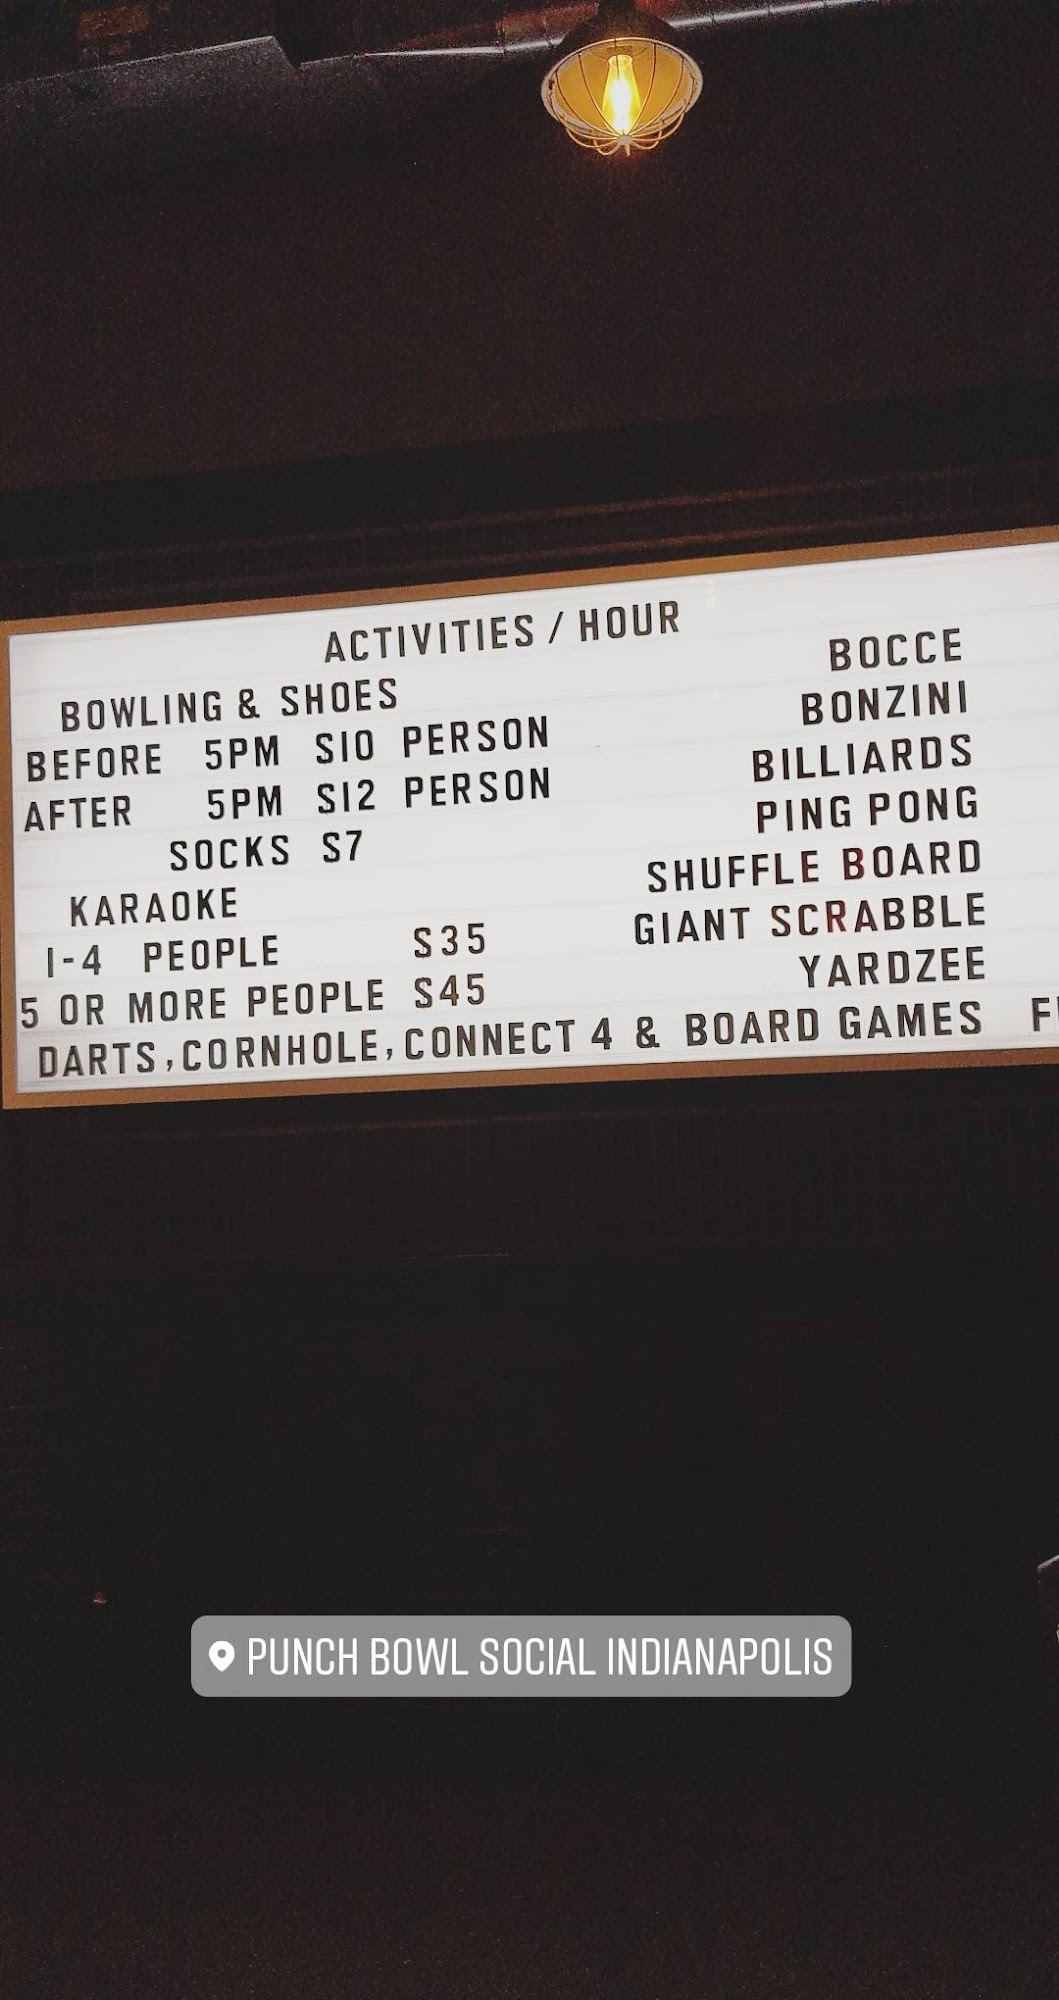 ACTIVITIES / HOUR
BOWLING & SHOES
BEFORE 5PM S10 PERSON
AFTER 5PM S12 PERSON
SOCKS S7
KARAOKE
1-4 PEOPLE S35
5 OR MORE PEOPLE S45
BOCCE
BONZINI
BILLIARDS
PING PONG
SHUFFLE BOARD
GIANT SCRABBLE
YARDZEE
DARTS,CORNHOLE,CONNECT 4 & BOARD GAMES
PUNCH BOWL SOCIAL INDIANAPOLIS